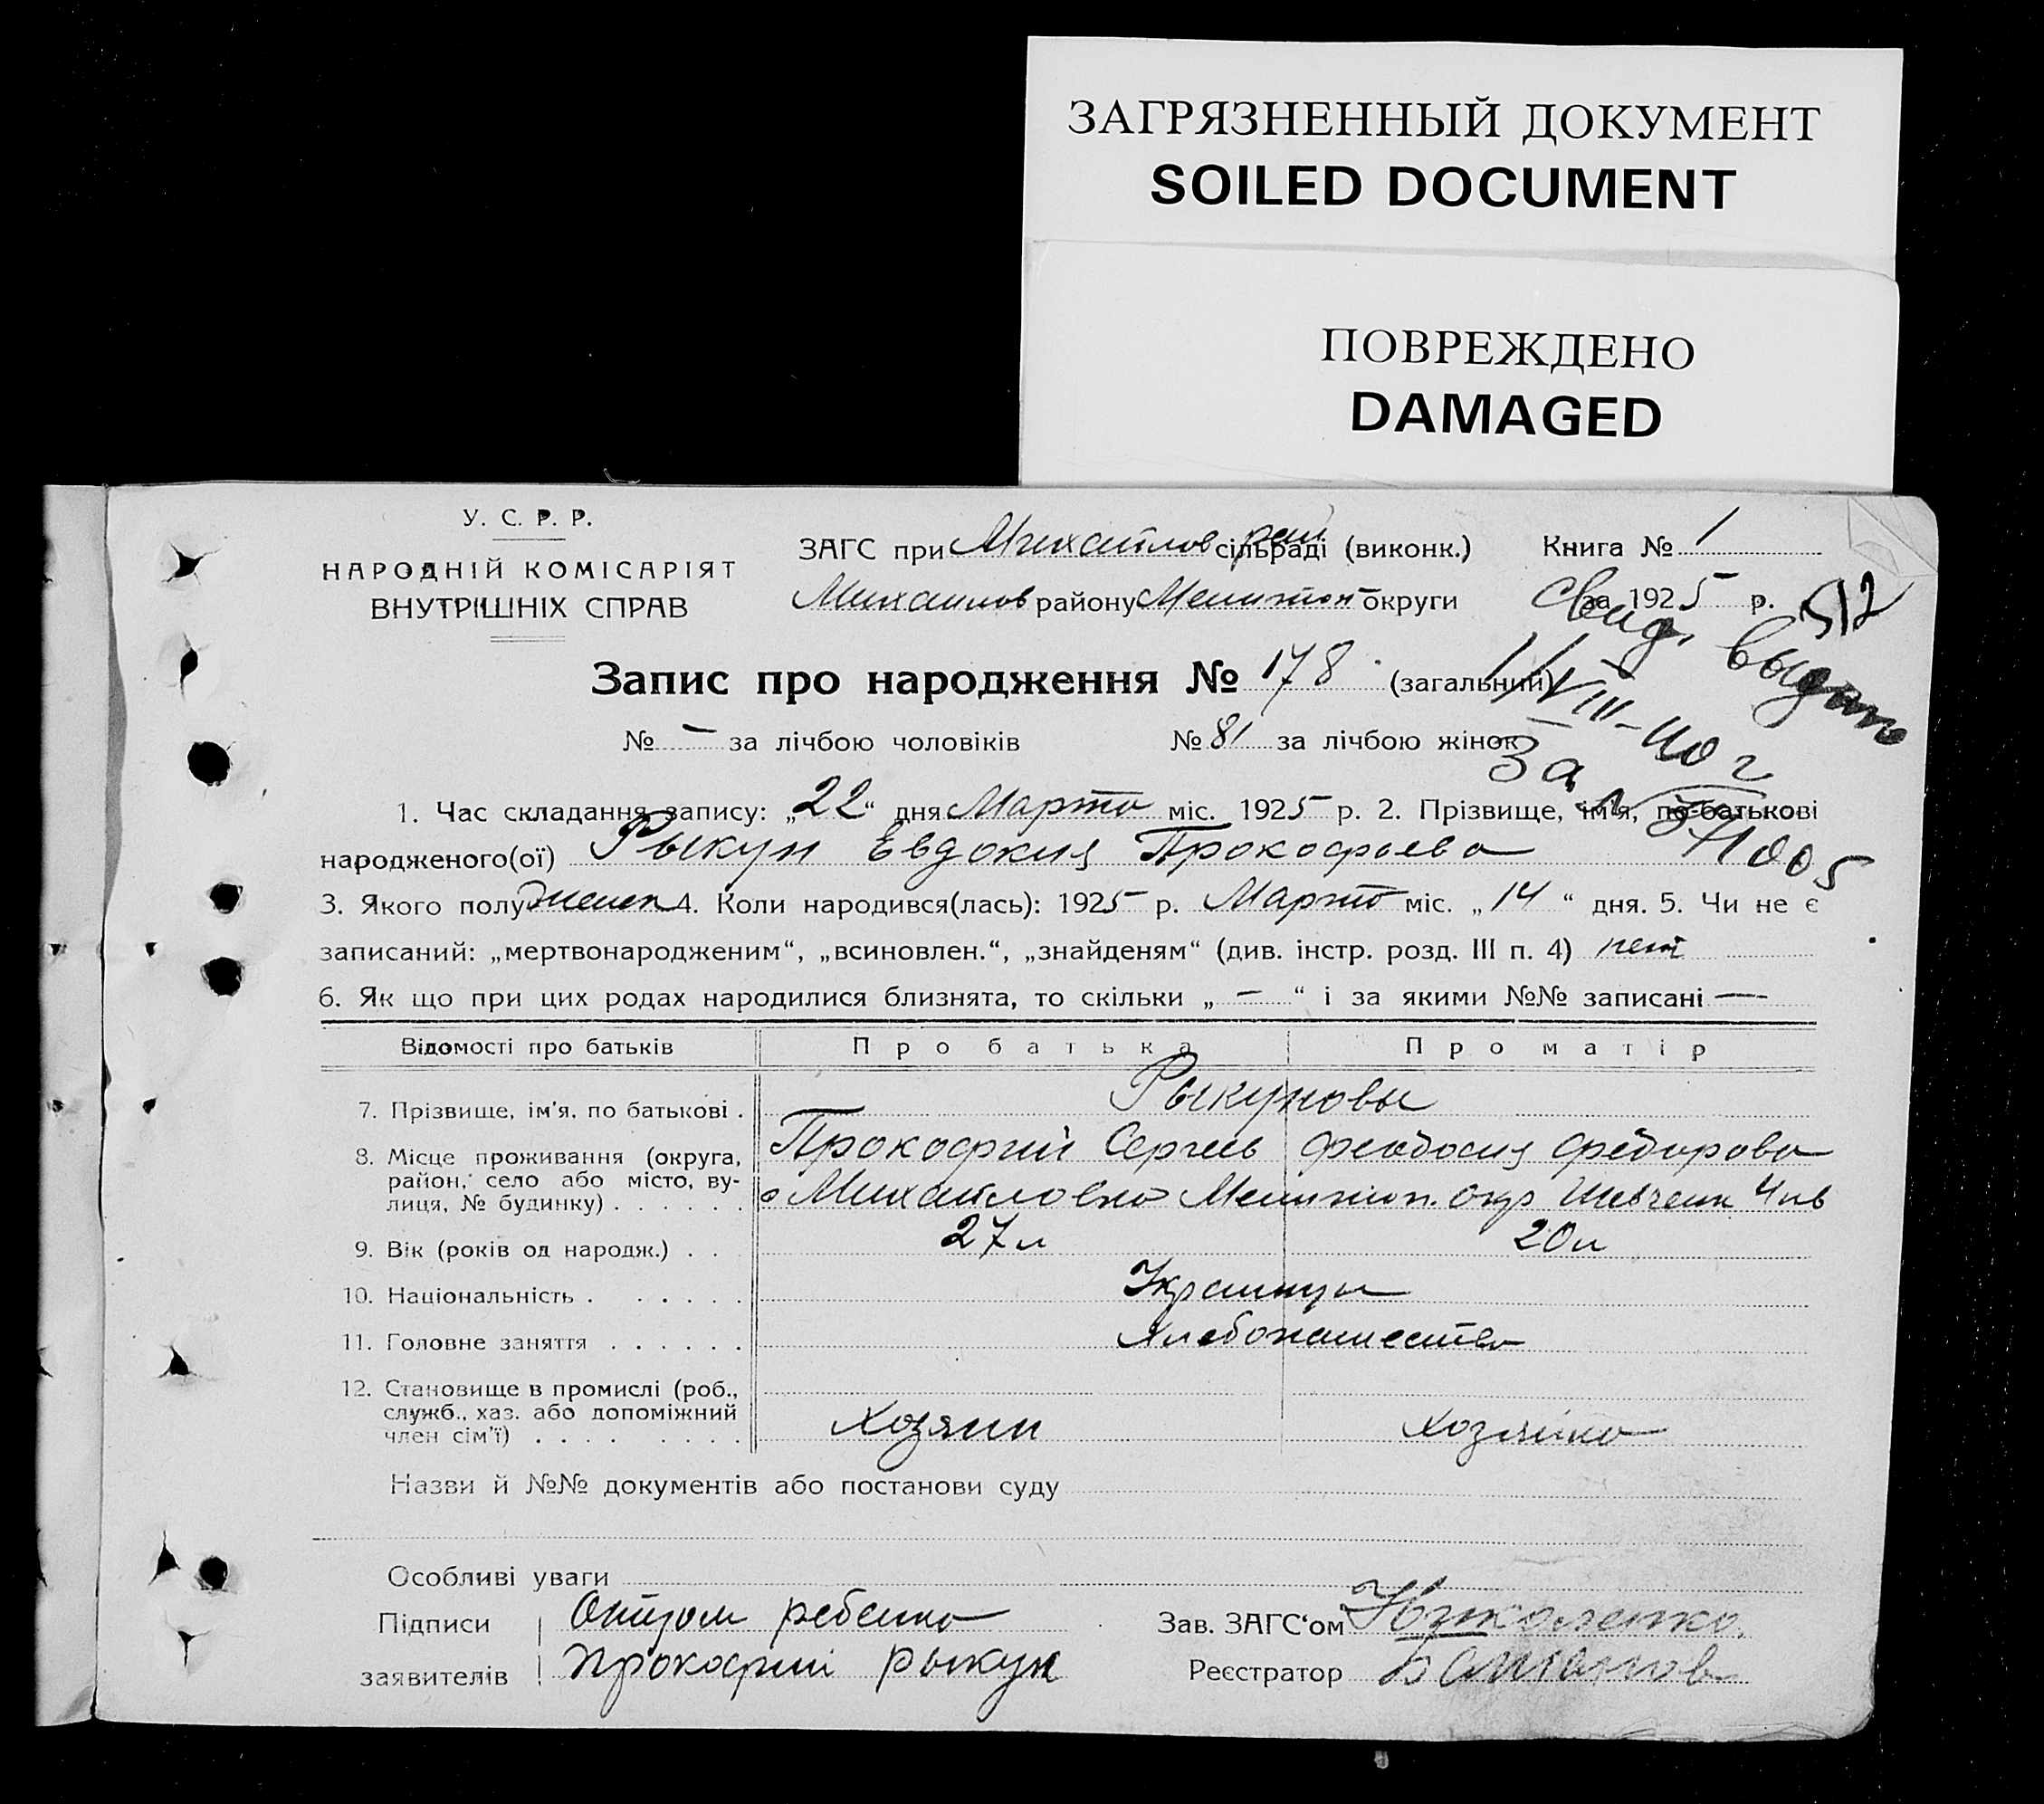 ЗАГРЯЗНЕННЫЙ ДОКУМЕНТ
SOILED DOCUMENT
ПОВРЕЖДЕНО
DAMAGED
У. С. Р. Р.
НАРОДНІЙ КОМІСАРІЯТ
ВНУТРІШНІХ СПРАВ
ЗАГС при Михайлов рай сільраді (виконк.) Книга № 1
Михайлов району Мелитоп округи за 1925 р. 512
Свид. выдано
Запис про народження № 178 (загальний)
VIII-40 г
№ – за лічбою чоловіків № 81 за лічбою жінок
За №
1. Час складання запису: „22“ дня Марта міс. 1925 р. 2. Прізвище, ім'я, по-батькові
народженого(ої) Рыкун Евдокия Прокофьева
3. Якого полу женск 4. Коли народився(лась): 1925 р. Марта міс. „14“ дня. 5. Чи не є
записаний: „мертвонародженим“, „всиновлен.“, „знайденям“ (див. інстр. розд. III п. 4) нет
6. Як що при цих родах народилися близнята, то скільки „ – “ і за якими №№ записані —
Відомості про батьків Про батька Про матір
7. Прізвище, ім'я, по батькові . Рыкуновы
Прокофий Сергеев Феодосия Федорова
8. Місце проживання (округа, район, село або місто, ву-
лиця, № будинку) . . . . . . с Михайловка Мелитоп. окр Шевченк
9. Вік (років од народж.) . . 27 л 20 л
10. Національність . . . . . . Украинцы
11. Головне заняття . . . . . . Хлебопашество
12. Становище в промислі (роб.,
служб., хаз. або допоміжний
член сім'ї) . . . . . . . . Хозяин Хозяйка
Назви й №№ документів або постанови суду
Особливі уваги
Підписи Отцом ребенка Зав. ЗАГС'ом
заявителів Прокофий Рыкун Реєстратор